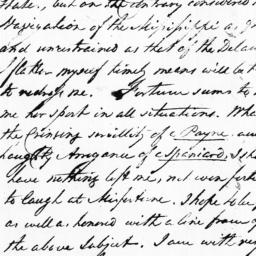 State, but on the contrary considered
Navigation of the Mississippi as
and unrestrained as that of the Delaw
I flatter myself timely means will be
to redress me. Fortune seems to
me her sport in all situations. Wha
the servility of a Payne and
haughty Arrogance of a Spaniard, I sh
have nothing left me, not even
to laugh at Misfortune. I hope to be
as well as honored with a line from
the above Subject. I am with